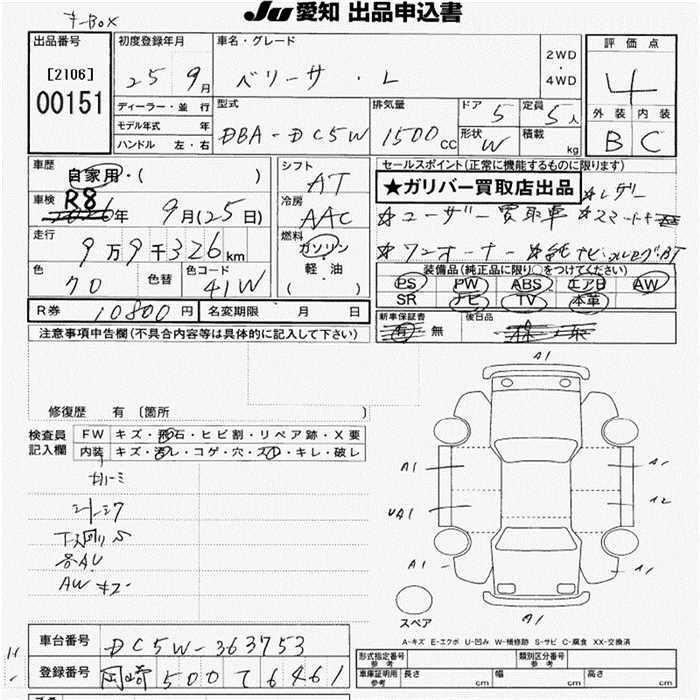 キーBOX
Ju 愛知 出品申込書
出品番号 [2106] 00151
初度登録年月 25 9月
車名・グレード ベリーサ・L
2WD・4WD
評価点 4
外装 内装
B C
ディーラー・並行
モデル年式 年
ハンドル 左・右
型式 DBA-DC5W
排気量 1500cc
ドア 5
定員 5人
形状 W
積載 kg
車歴 自家用・( )
車検 R8 年 9月(25日)
走行 9万9千326km
色 クロ 色替 色コード 41W
シフト AT
冷房 AAC
燃料 ガソリン
軽油
( )
セールスポイント(正常に機能するものに限ります)
★ガリバー買取店出品 ☆レザー
☆ユーザー買取車 ☆スマートキー
☆ワンオーナー ☆純ナビ フルセグ BT
装備品(純正品に限り○をつけてください)
PS PW ABS エアB AW
SR ナビ TV 本革
新車保証書 有 無
後日品
R券 10800円 名変期限 月 日
注意事項申告欄(不具合内容等は具体的に記入して下さい)
修復歴 有 [箇所 ]
検査員記入欄
FW キズ・飛石・ヒビ割・リペア跡・X要
内装 キズ・汚レ・コゲ・穴・スレ・キレ・破レ
各AU
AW キズ
A1
A1
A1
UA1
A2
A1
A1
A1
スペア
A-キズ E-エクボ U-凹み W-補修跡 S-サビ C-腐食 XX-交換済
車台番号 DC5W-363753
登録番号 岡崎 500 て 6461
形式指定番号 参考
類別区分番号 参考
車庫証明用 参考 長さ cm 幅 cm 高さ cm